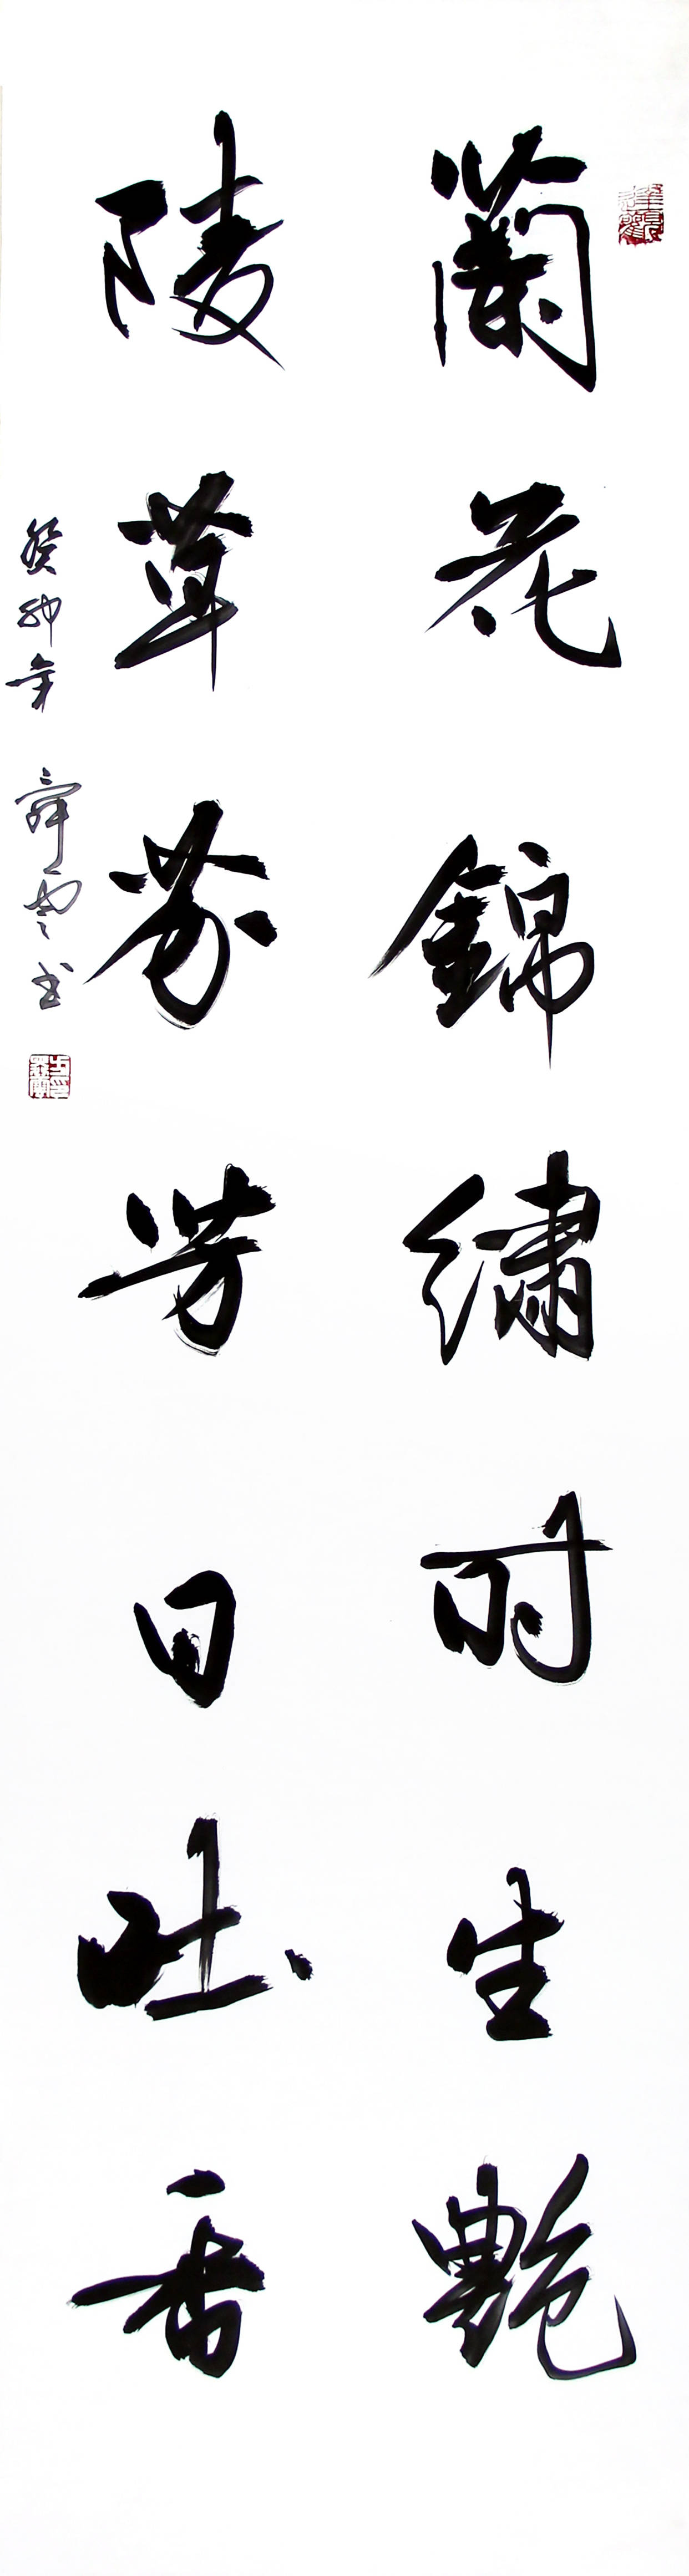 蘭花錦繡時生艷
陵草芬芳日吐香
癸卯年 舜雲书